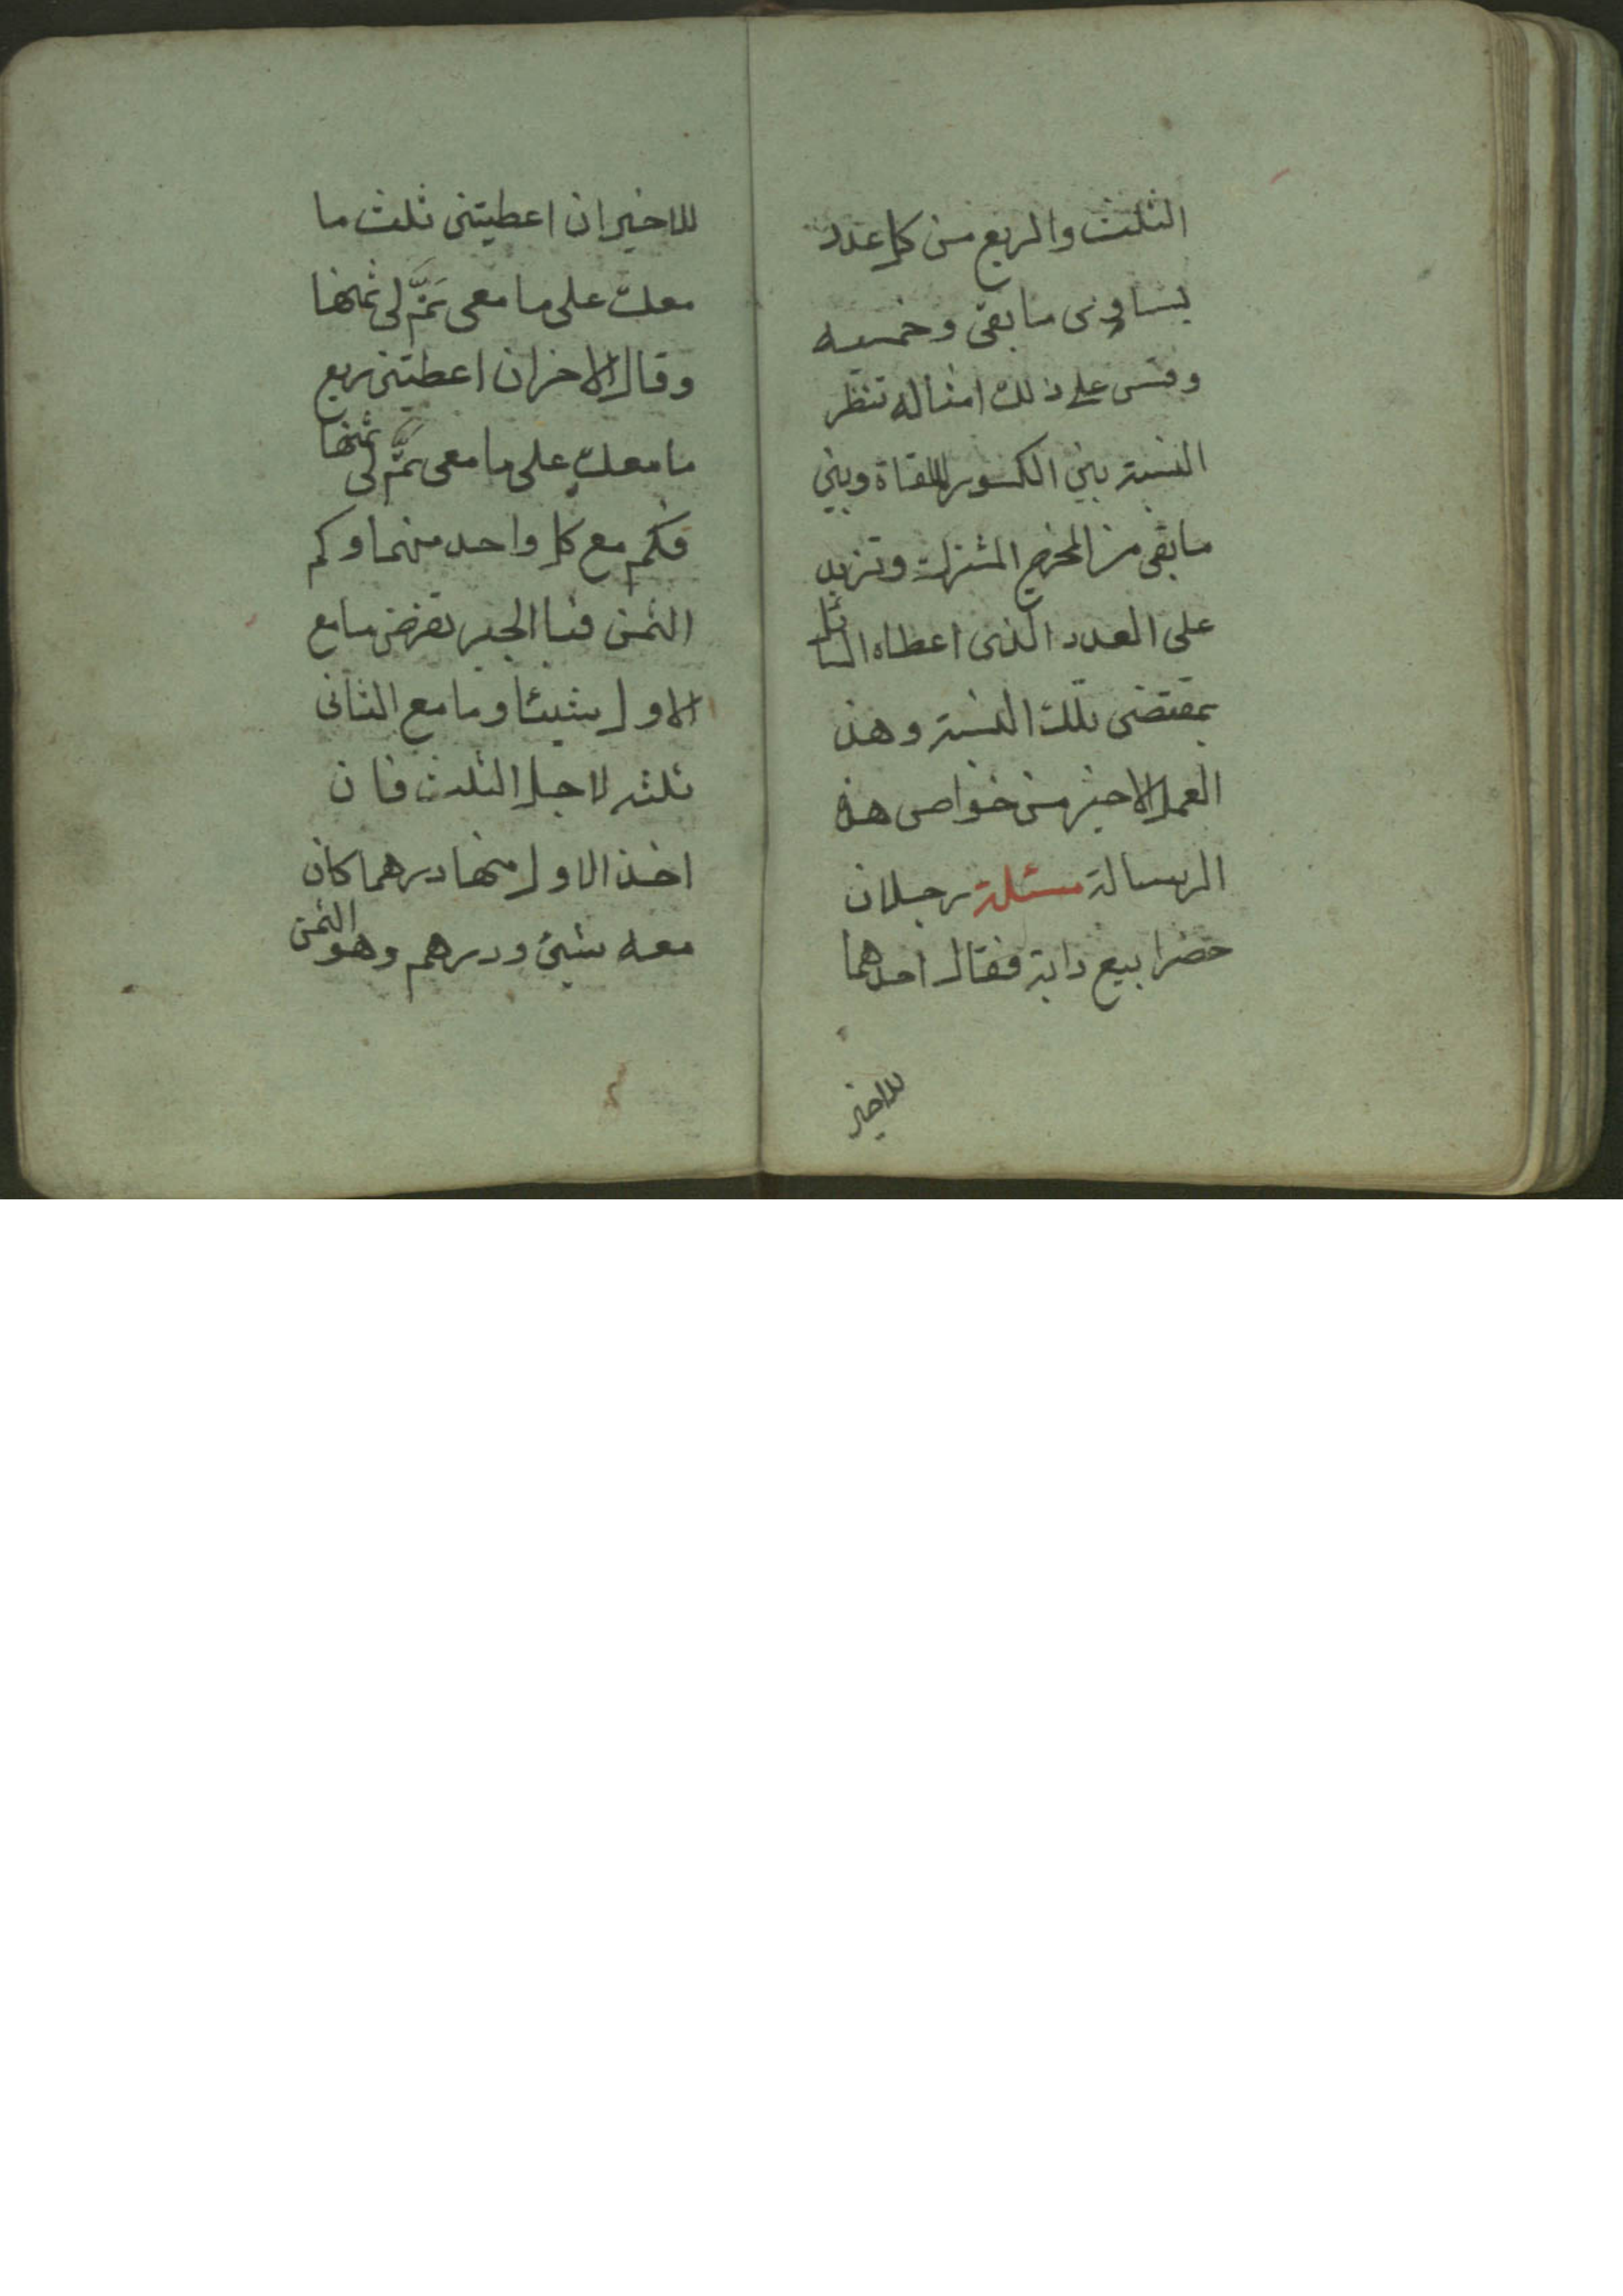 الثلث والربع من كل عدد
يساوى ما بقى وخمسيه
وقس على ذلك امثاله تنظر
النسبة بين الكسور الملقاة وبين
ما بقى من المخرج المشترك وتزيد
على العدد الذى اعطاه السائل
بمقتضى تلك النسبة وهذ
العمل الاخير من خواص هذه
الرسالة مسئلة رجلان
حضرا بيع دابة فقال احدهما
للاخير
للاخير ان اعطيتنى ثلث ما
معك على ما معى تَمَّ لى ثمنها
وقال الاخر ان اعطيتنى ربع
ما معك على ما معى تَمَّ لى ثمنها
فكم مع كل واحد منهما وكم
الثمن فبا الجبر تفرض ما مع
الاول شيئا وما مع الثانى
ثلثه لاجل الثلث فان
اخذ الاول منها درهما كان
معه شيئ ودرهم وهو الثمن